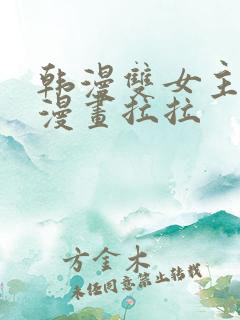 韩漫雙女主
漫畫拉拉
方金木
未经同意禁止转载